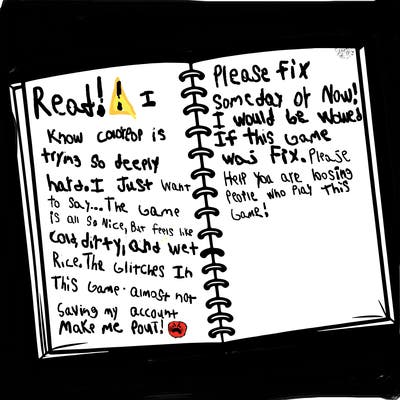 Read! ! I
Know coloredp is
trying so deeply
hard. I Just want
to say... The Game
is all so Nice, But feels like
cold, dirty, and wet
Rice. The Glitches In
This Game. almost not
Saving my account
Make me Pout!
Please Fix
Someday or Now!
I would be wowed
If this Game
was Fix. Please
Help You are loosing
People who Play This
Game!